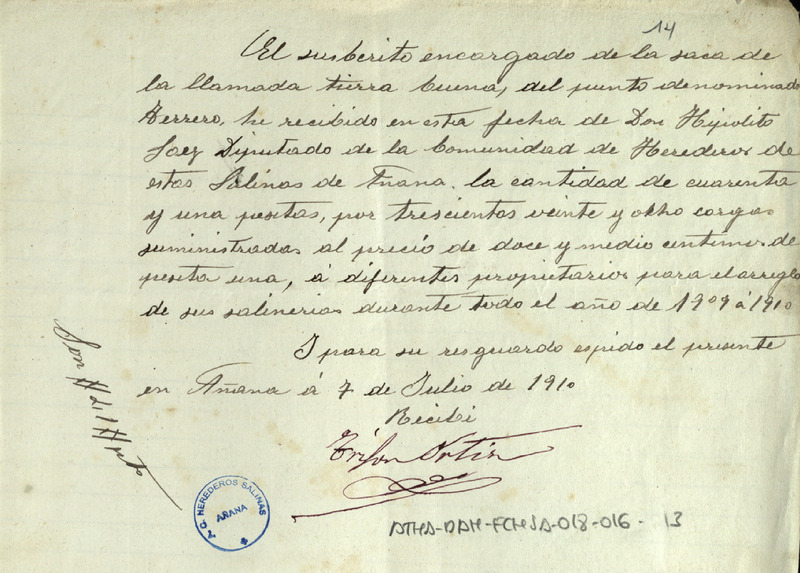 14
El susbcrito encargado de la saca de
la llamada tierra buena, del punto denominado
Terrero, he recibido en esta fecha de Don Hipolito
Saez Diputado de la Comunidad de Herederos de
estas Salinas de Añana. la cantidad de cuarenta
y una pesetas, por trescientas veinte y ocho cargas
suministradas al precio de doce y medio centimos de
peseta una, á diferentes propietarios para el arreglo
de sus salinerias durante todo el año de 1909 á 1910
I para su resguardo espido el presente
en Añana á 7 de Julio de 1910
Recibi
Ortiz
Son #41# pts
C. HEREDEROS SALINAS
AÑANA
ATHA-DAH-FCHSA-018-016-13